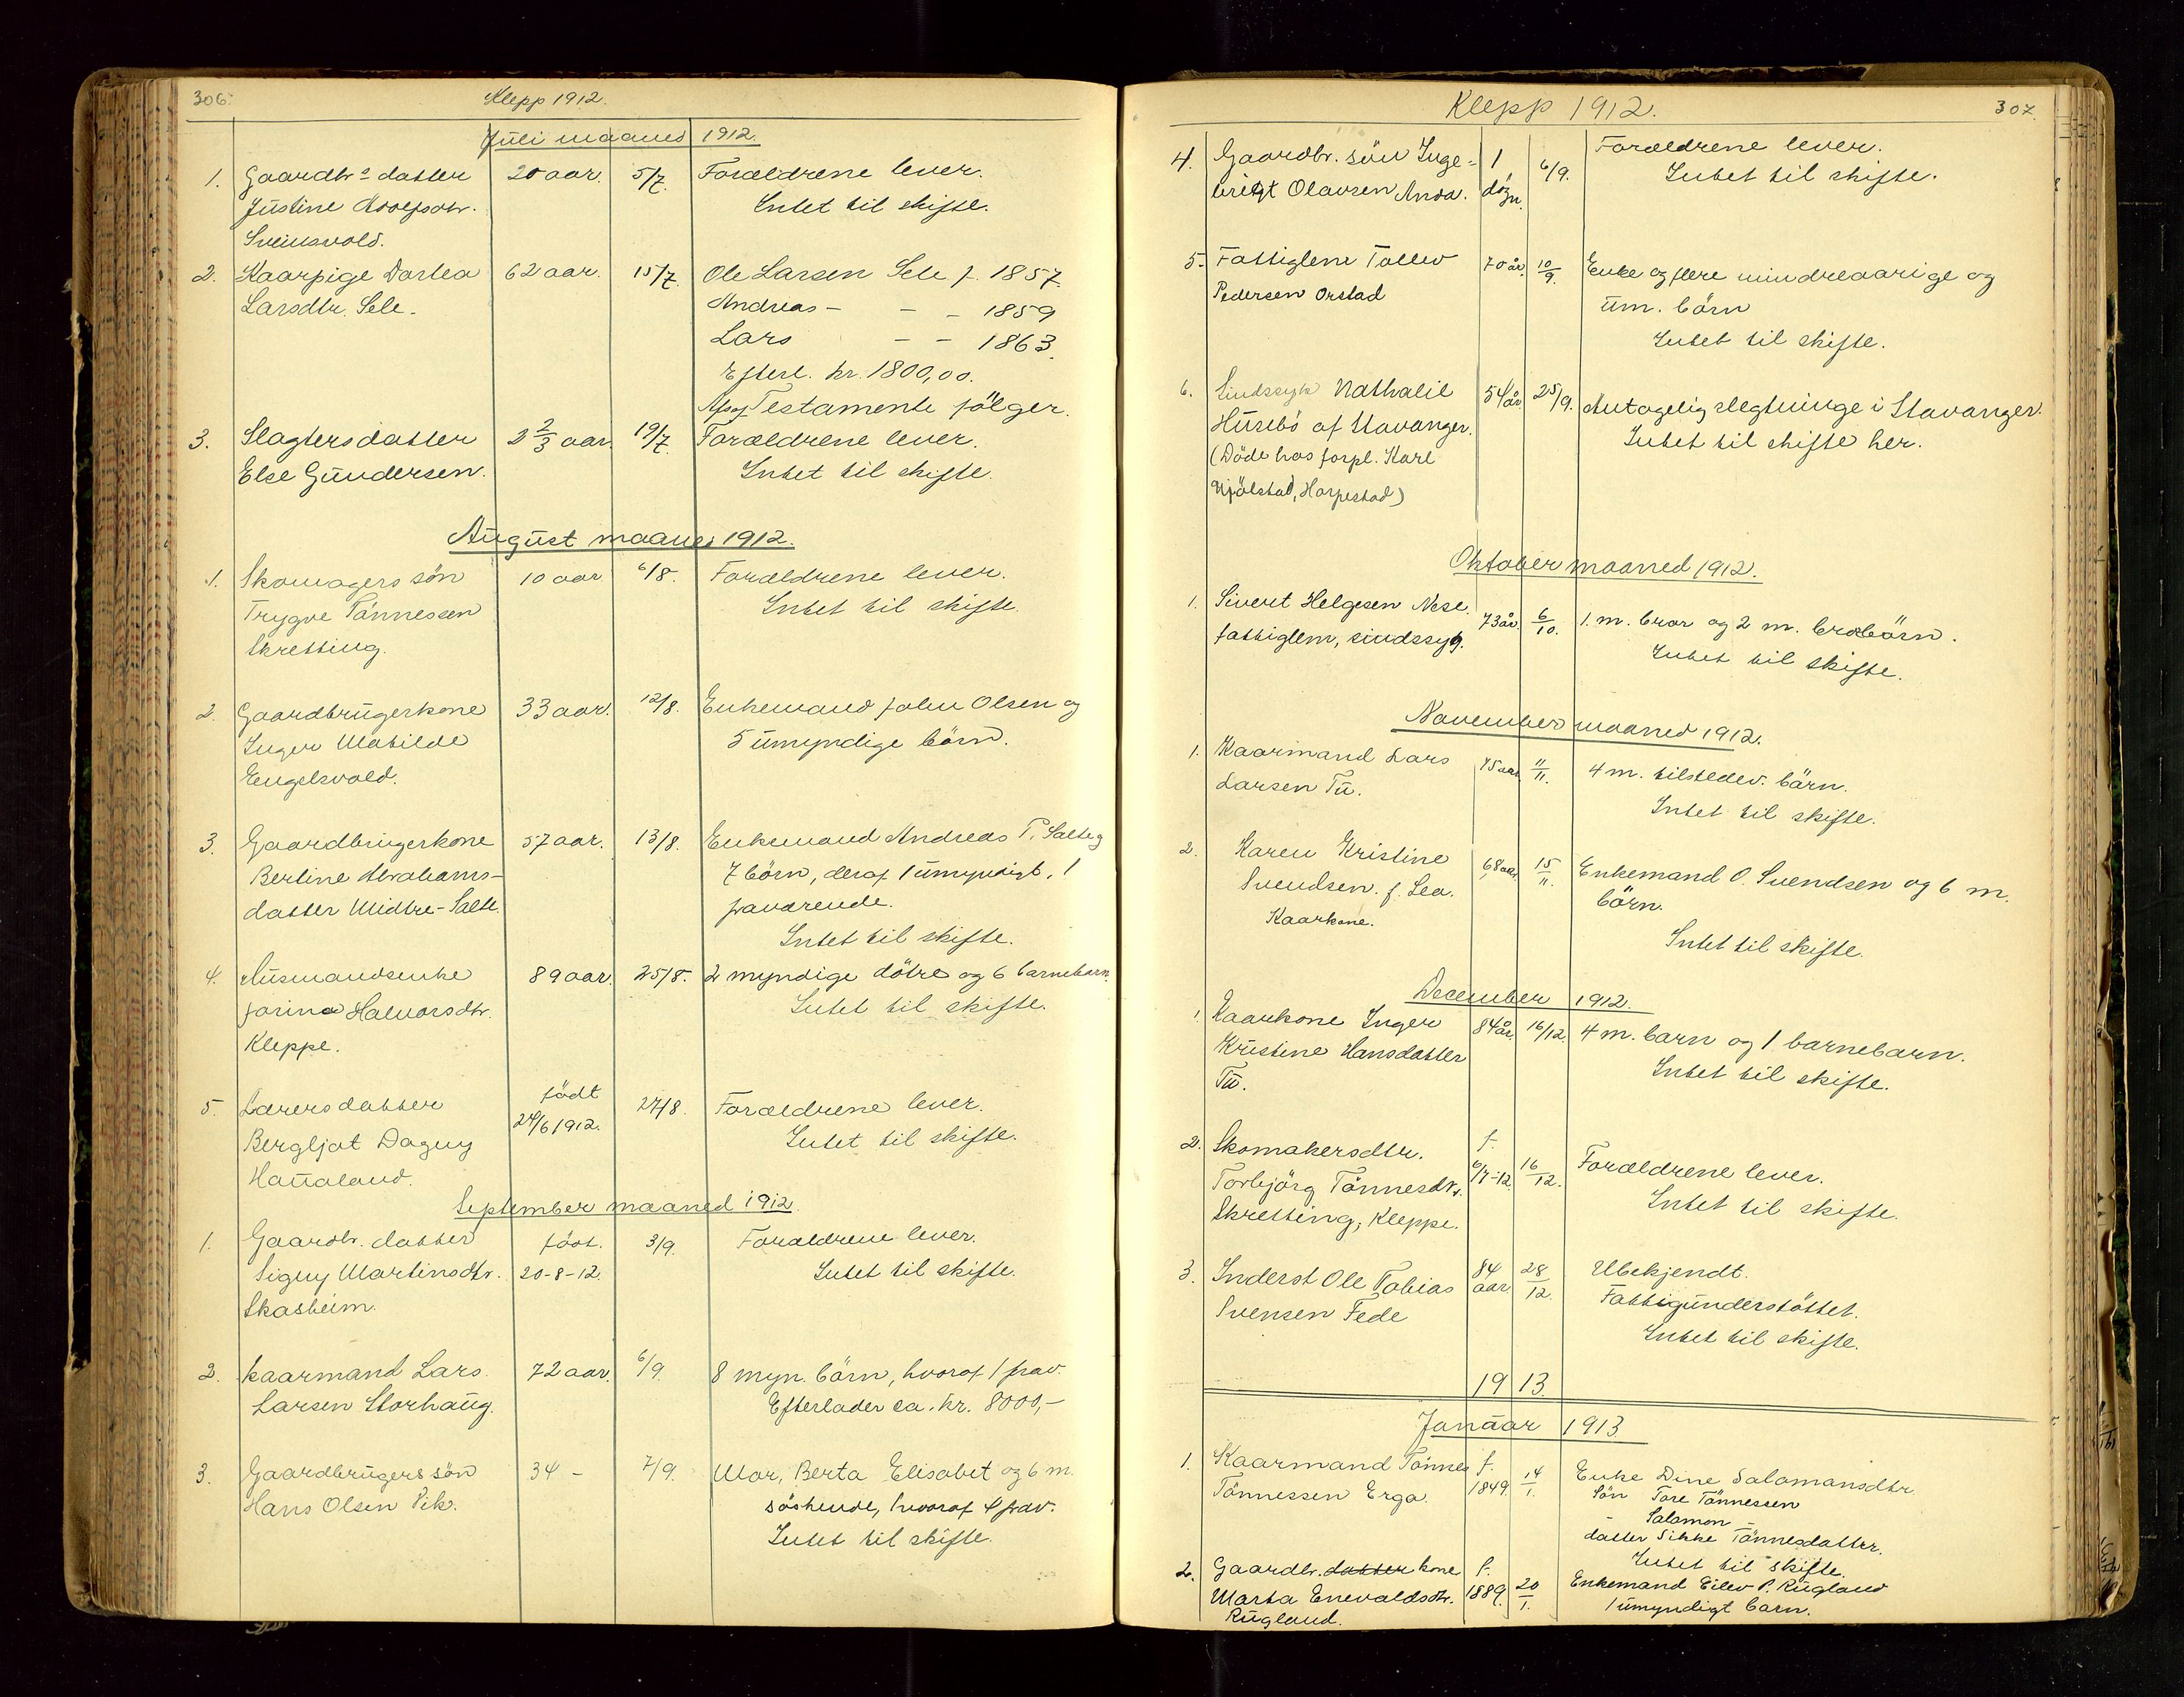 306.
Klepp 1912.
Juli maaned 1912.
1. Gaardbr.s datter 20 aar. 5/7. Forældrene lever.
Justine Adolfsdtr. Intet til skifte.
Sveinsvold.
2. Kaarpige Dortea 62 aar. 15/7. Ole Larsen Sele f. 1857.
Larsdtr. Sele. Andreas - - - 1859
Lars - - 1863.
Efterl. kr. 1800,00.
Testamente følger.
3. Slagtersdatter 2 2/3 aar. 19/7. Forældrene lever.
Else Gundersen. Intet til skifte.
August maaned 1912.
1. Skomagers søn 10 aar 6/8. Forældrene lever.
Trygve Tønnessen Intet til skifte.
Skretting.
2. Gaardbrugerkone 33 aar. 12/8. Enkemand John Olsen og
Inger Matilde 5 umyndige børn.
Engelsvold.
3. Gaardbrugerkone 57 aar. 13/8. Enkemand Andreas T. Salte og
Bertine Abrahams- 7 børn, deraf 1 umyndigt, 1
datter Midtre-Salte. fraværende.
Intet til skifte.
4. Husmandsenke 89 aar. 25/8. 2 myndige døtre og 6 barnebarn.
Jorina Halvorsdtr. Intet til skifte.
Kleppe.
5. Lærersdatter født 27/8. Forældrene lever.
Bergljot Dagny 24/6 1912. Intet til skifte.
Haualand.
September maaned 1912.
1. Gaardbr. datter født. 3/9. Forældrene lever.
Signy Martinsdtr. 20-8-12. Intet til skifte.
Skasheim.
2. Kaarmand Lars 72 aar. 6/9. 8 myn. børn, hvoraf 1 frav.
Larsen Storhaug. Efterlader ca. kr. 8000,-
3. Gaardbrugers søn 34 - 7/9. Mor, Berta Elisabet og 6 m.
Hans Olsen Vik. søskende, hvoraf 4 frav.
Intet til skifte.
Klepp 1912.
307.
4. Gaardbr. søn Inge- 1 6/9. Forældrene lever.
brigt Olavsen Anda. døgn. Intet til skifte.
5. Fattiglem Tollev 70 år. 10/9. Enke og flere mindreaarige og
Pedersen Orstad um. børn
Intet til skifte.
6. Sindssyk Nathalie 54 år 25/9. Antagelig slegtninge i Stavanger.
Husebø af Stavanger. Intet til skifte her.
(Døde hos forpl. Karl
Njølstad, Horpestad)
Oktober maaned 1912.
1. Sivert Helgesen Nese. 73 år. 6/10. 1. m. bror og 2 m. brobørn.
fattiglem, sindssyg. Intet til skifte.
November maaned 1912.
1. Kaarmand Lars 75 aar 11/11. 4 m. tilstedev. børn.
Larsen Tu. Intet til skifte.
2. Karen Kristine 68 aar. 15/11. Enkemand O. Svendsen og 6 m.
Svendsen. f. Lea. børn.
Kaarkone. Intet til skifte.
December 1912.
1. Kaarkone Inger 84 år. 16/12. 4 m. barn og 1 barnebarn.
Kristine Hansdatter Intet til skifte.
Tu.
2. Skomakersdtr. f. Forældrene lever.
Torbjørg Tønnesdtr. 6/7-12. 16/12. Intet til skifte.
Skretting, Kleppe.
3. Inderst Ole Tobias 84 aar 28/12. Ubekjendt.
Svensen Fede Fattigunderstøttet.
Intet til skifte.
1913.
Januar 1913.
1. Kaarmand Tønnes f. 14/1. Enke Dine Salomonsdtr.
Tønnessen Erga. 1849. Søn Tore Tønnessen
- Salomon -
datter Sikke Tønnesdatter.
Intet til skifte.
2. Gaardbr. datter kone f. Enkemand Eilev P. Rugland
Marta Enevaldsdtr. 1889. 20/1. 1 umyndigt barn.
Rugland.